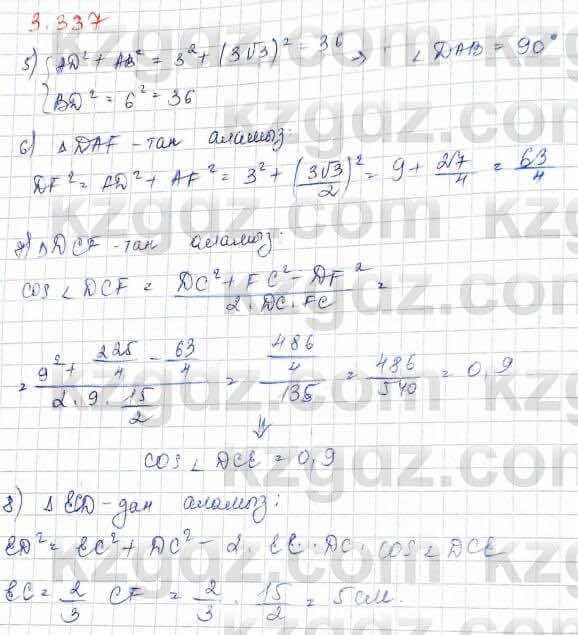 3.337
5) { AD² + AB² = 3² + (3√3)² = 36 ⇒ ∠DAB = 90°
BD² = 6² = 36
6) △DAF-тан аламыз:
DF² = AD² + AF² = 3² + (3√3/2)² = 9 + 27/4 = 63/4
7) △DCF-тан аламыз:
cos∠DCF = (DC² + FC² - DF²)/(2·DC·FC) =
= (9² + 225/4 - 63/4)/(2·9·15/2) = (486/4)/135 = 486/540 = 0,9
⇓
cos∠DCE = 0,9
8) △ECD-дан аламыз:
ED² = EC² + DC² - 2·EC·DC·cos∠DCE
EC = 2/3 CF = 2/3 · 15/2 = 5 см.
kzgdz.com